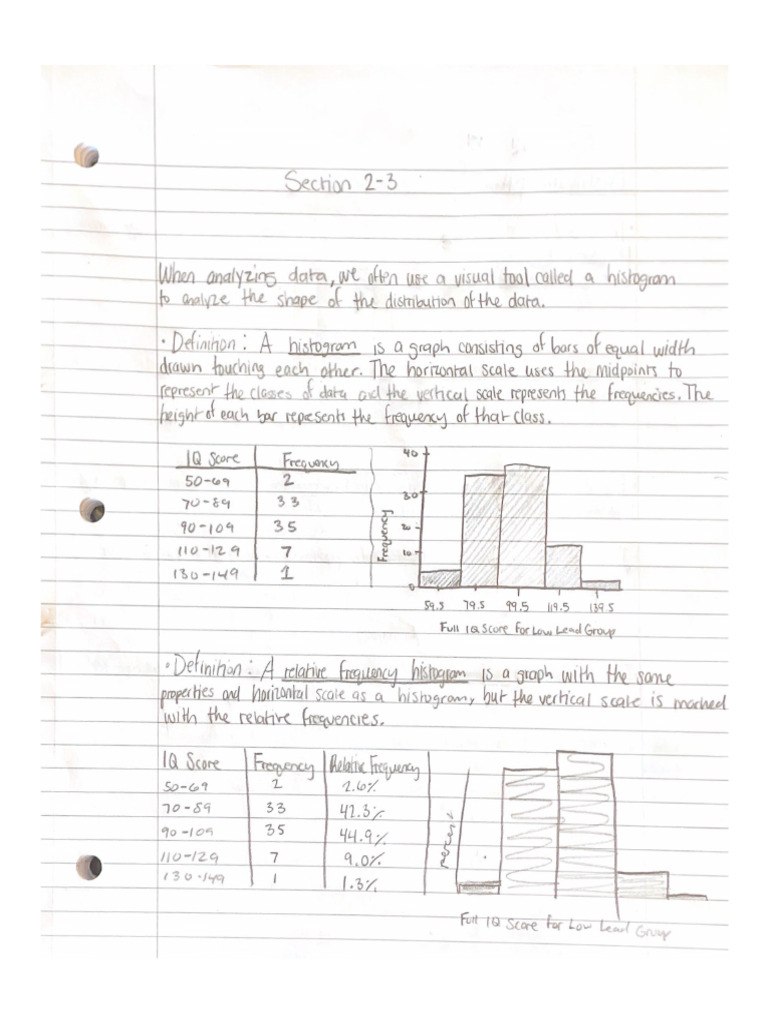 Section 2-3
When analyzing data, we often use a visual tool called a histogram
to analyze the shape of the distribution of the data.
• Definition: A histogram is a graph consisting of bars of equal width
drawn touching each other. The horizontal scale uses the midpoints to
represent the classes of data and the vertical scale represents the frequencies. The
height of each bar represents the frequency of that class.
IQ Score Frequency
50-69 2
70-89 33
90-109 35
110-129 7
130-149 1
Frequency
40
30
20
10
0
59.5 79.5 99.5 119.5 139.5
Full IQ Score for Low Lead Group
• Definition: A relative frequency histogram is a graph with the same
properties and horizontal scale as a histogram, but the vertical scale is marked
with the relative frequencies.
IQ Score Frequency Relative Frequency
50-69 2 2.6%
70-89 33 42.3%
90-109 35 44.9%
110-129 7 9.0%
130-149 1 1.3%
percent
Full IQ Score for Low Lead Group